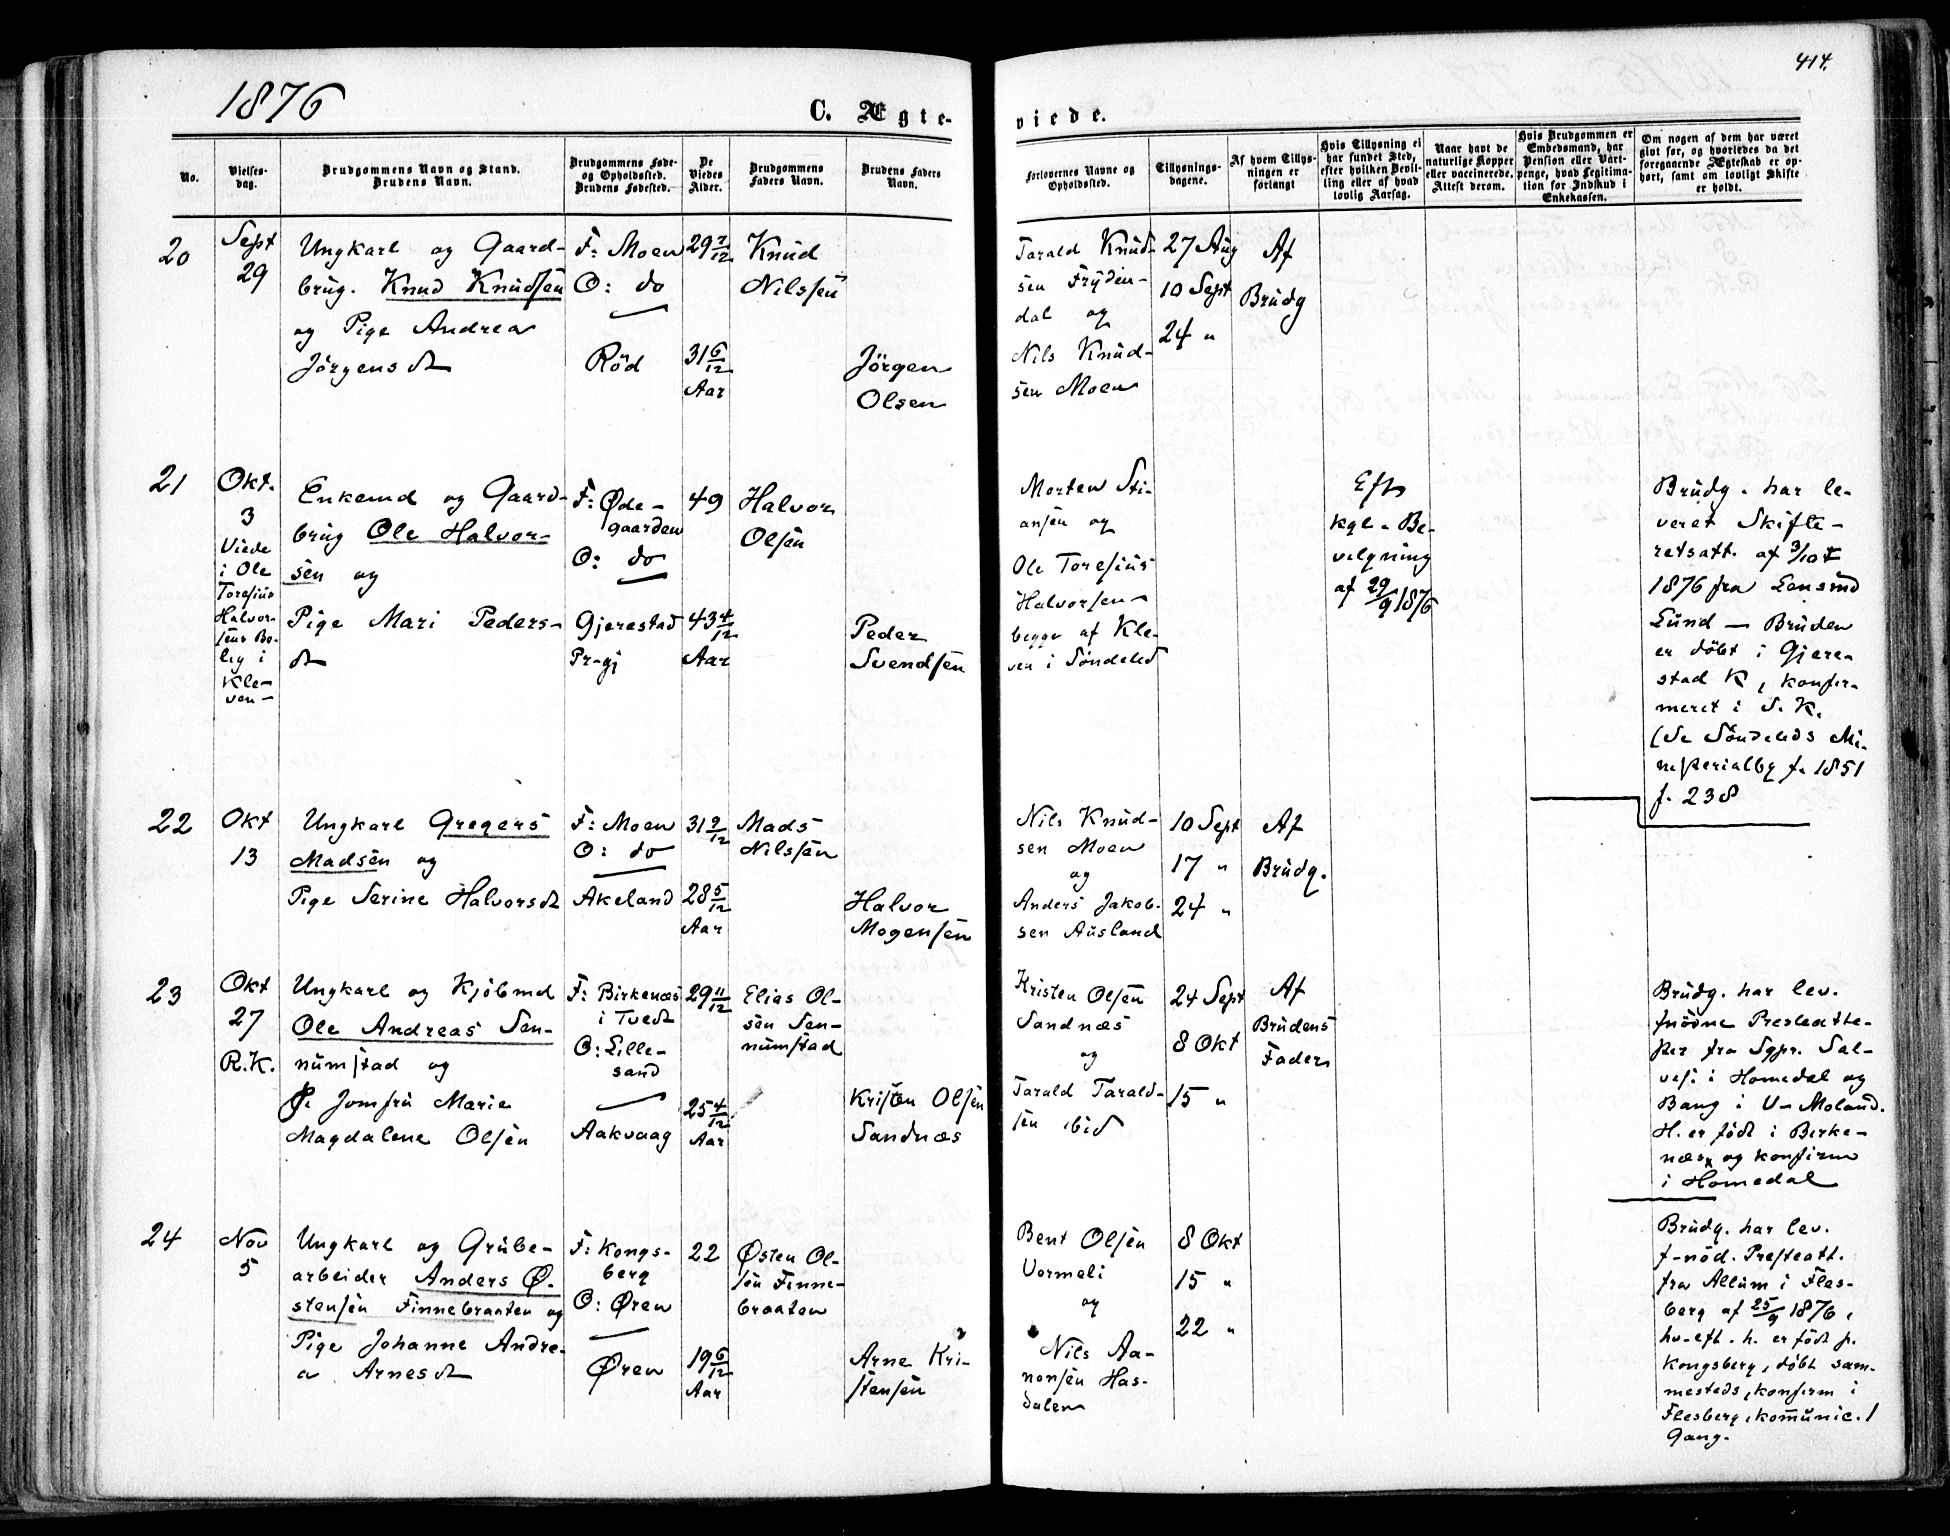 1876
C. Ægte-
viede.
414.
No.
Vielses-
dag.
Brudgommens Navn og Stand.
Brudens Navn.
Brudgommens Føde-
og Opholdssted.
Brudens Fødested.
De
Viedes
Alder.
Brudgommens
Faders Navn.
Brudens Faders
Navn.
Forlovernes Navne og
Opholdssted.
Tillysnings-
dagene.
Af hvem Tillys-
ningen er
forlangt
Hvis Tillysning ei
har fundet Sted,
efter hvilken Bevil-
ling eller af hvad
lovlig Aarsag.
Naar havt de
naturlige Kopper
eller vaccinerede.
Attest derom.
Hvis Brudgommen er
Embedsmand, har
Pension eller Vart-
penge, hvad Legitima-
tion for Indskud i
Enkekassen.
Om nogen af dem har været
gift før, og hvorledes da det
foregaaende Ægteskab er op-
hørt, samt om lovligt Skifte
er holdt.
20
Sept
29
Ungkarl og Gaard-
brug. Knud Knudsen
og Pige Andrea
Jörgensdt
F: Moen
O: do
Röd
29 7/12
31 6/12
Aar
Knud
Nilssen
Jörgen
Olsen
Tarald Knud-
sen Fryden-
dal og
Nils Knud-
sen Moen
27 Aug
10 Sept
24 "
Af
Brudg
21
Okt.
3
Viede
i Ole
Toresius
Halvor-
sens Bo-
lig i
Kle-
ven-
Enkemd og Gaard-
brug Ole Halvor-
sen og
Pige Mari Peders-
dt
F: Øde-
gaarden
O: do
Gjerestad
Pr-gj
49
43 4/12
Aar
Halvor
Olsen
Peder
Svendsen
Morten Sti-
ansen og
Ole Toresius
Halvorsen-
begge af Kle-
ven i Söndeled
Eft
kgl- Be-
vilgning
af 29/9 1876
Brudg. har le-
veret Skifte-
retsatt. af 3/10
1876 fra Lensmd
Lund - Bruden
er döbt i Gjere-
stad K, konfir-
meret i S. K.
(Se Söndeleds Mi-
nisterialbg f. 1851
f. 238
22
Okt
13
Ungkarl Gregers
Madsen og
Pige Serine Halvorsdt
F: Moen
O: do
Akeland
31 9/12
28 5/12
Aar
Mads
Nilssen
Halvor
Mogensen
Nils Knud-
sen Moen
og
Anders Jakob-
sen Ausland
10 Sept
17 "
24 "
Af
Brudg.
23
Okt
27
R.K.
Ungkarl og Kjöbmd
Ole Andreas Sen-
numstad og
Jomfru Marie
Magdalene Olsen
F: Birkenæs
i Tvedt
O: Lille-
sand
Aakvaag
29 11/12
25 4/12
Aar
Elias Ol-
sen Sen-
numstad
Kristen Olsen
Sandnæs
Kristen Olsen
Sandnæs
og
Tarald Tarald-
sen ibid
24 Sept
8 Okt
15 "
Af
Brudens
Fader
Brudg. har lev.
fnödne Presteatte-
ster fra Sgpr. Sal-
vesi i Homedal og
Bang i V- Moland.
H. er födt i Birke-
næs, og konfirm
i Homedal
24
Nov
5
Ungkarl og Grube-
arbeider Anders Ø-
stensen Finnebraaten og
Pige Johanne Andre-
a Arnesdt
F: Kongs-
berg
O: Ören
Ören
22
19 6/12
Aar
Østen Ol-
sen Finne-
braaten
Arne Kri-
stensen
Bent Olsen
Vormeli
og
Nils Aa-
nonsen Has-
dalen
8 Okt
15 "
22 "
Brudg. har lev.
f-nöd. Presteatt.
fra Allum i Fles-
berg af 25/9 1876,
hv-eft. h. er födt p.
Kongsberg, döbt sam-
mesteds, konfirm i
Flesberg, kommunic. 1
Gang.